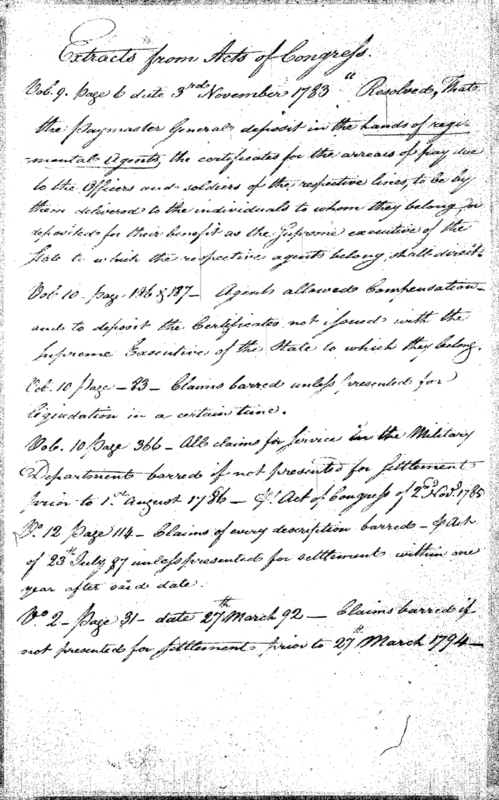 Extracts from Acts of Congress.
Vol. 9. Page 6 date 3rd November 1783 "Resolved, That
the Paymaster General deposit in the hands of regi-
mental Agents, the certificates for the arrears of pay due
to the Officers and soldiers of the respective lines, to be by
them delivered to the individuals to whom they belong, or
deposited for their benefit as the Supreme executive of the
State to which the respective agents belong, shall direct.
Vol. 10 - Page 186 & 187 - Agents allowed Compensation -
and to deposit the Certificates not issued with the
Supreme Executive of the State to which they belong.
Vol. 10 Page - 83 - Claims barred unless presented for
liquidation in a certain time.
Vol. 10 Page 366 - All claims for Service in the Military
Department barred if not presented for settlement
prior to 1st August 1786 - Pr. Act of Congress of 2nd Novr. 1785
Vo. 12 Page 114 - Claims of every description barred - Pr Act
of 23rd July 87 unless presented for settlement within one
year after said date.
Vo. 2 - Page 31 - date 27th March 92 - Claims barred if
not presented for settlement prior to 27th March 1794 -